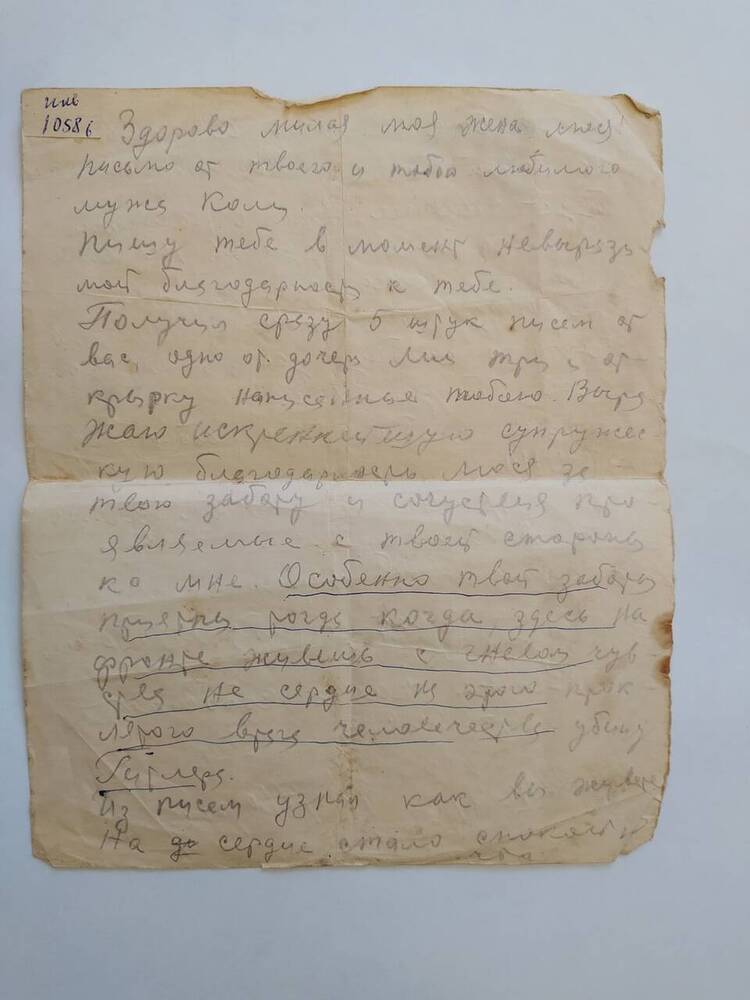 инв
10586
Здорово милая моя жена Мося!
письмо от твоего и тобою любимого
мужа Коли.
Пишу тебе в момент невырази-
мой благодарность к тебе.
Получил сразу 5 штук писем от
вас, одно от дочери три и от-
крытку написанные тобою. Выра
жаю искреннейшую супружес
кую благодарность Мося за
твою заботу и сочуствия про
являемые с твоей стороны
ко мне. Особенно твои заботы
приятны тогда когда здесь на
фронте живешь с гневом чув-
ства на сердце на этого прок-
лятого врага человечества убийцу
Гитлера.
Из писем узнал как вы живете
На до сердце стало спокой